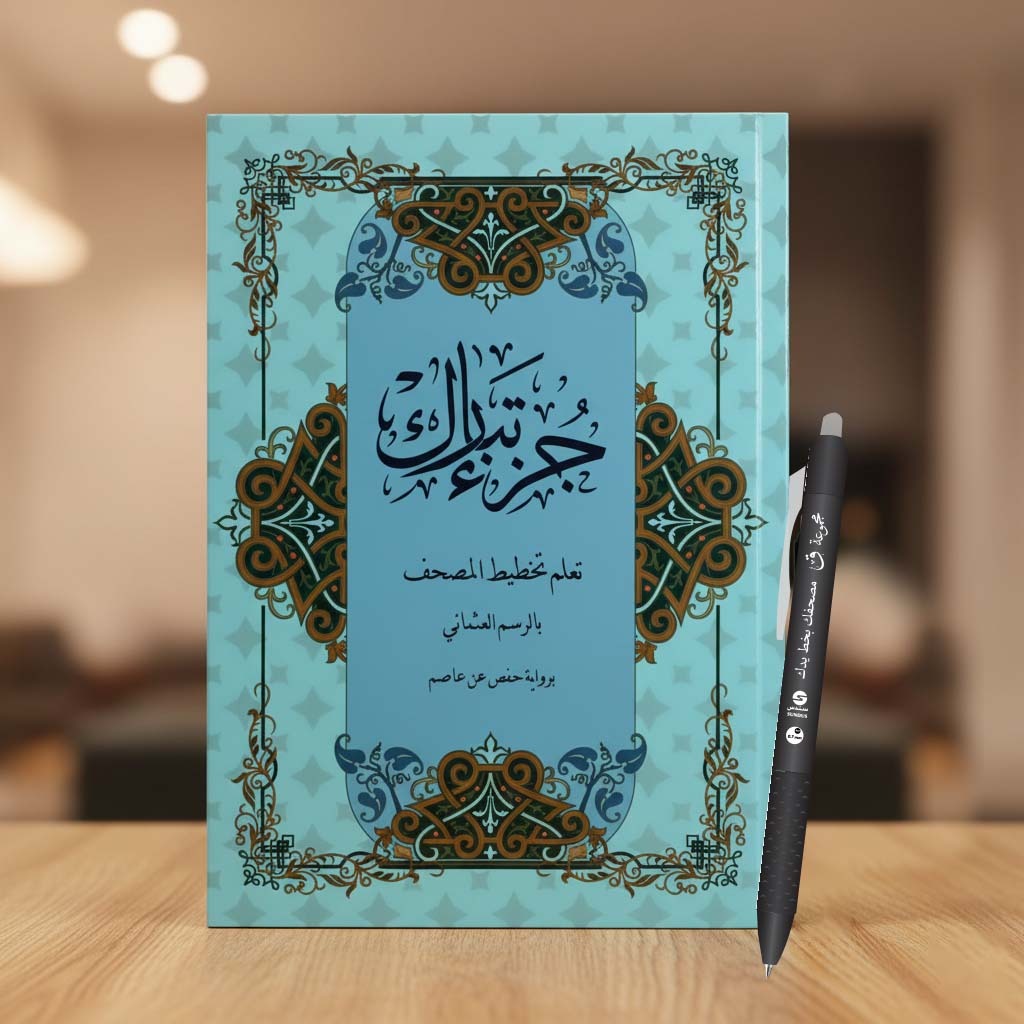 جُزْء تَبَارَك
تعلم تخطيط المصحف
بالرسم العثماني
برواية حفص عن عاصم
مجموعة ق مصحفك بخط يدك
سندس
SUNDUS